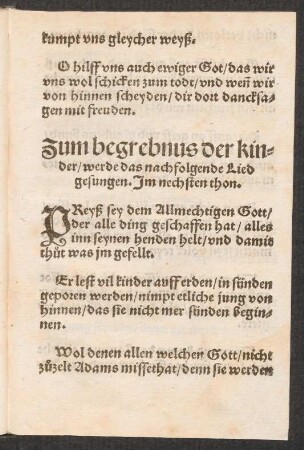 kumpt vns gleycher weyß.
O hilff vns auch ewiger Got/das wir
vns wol schicken zum todt/vnd weñ wir
von hinnen scheyden/dir dort dancksa-
gen mit freuden.
Zum begrebnus der kin-
der/werde das nachfolgende Lied
gesungen. Im nechsten thon.
PReyß sey dem Allmechtigen Gott/
der alle ding geschaffen hat/alles
inn seynen henden helt/vnd damit
thůt was jm gefellt.
Er lest vil kinder auff erden/in sünden
geporen werden/nimpt etliche jung von
hinnen/das sie nicht mer sünden begin-
nen.
Wol denen allen welchen Gott/nicht
zůzelt Adams missethat/denn sie werden